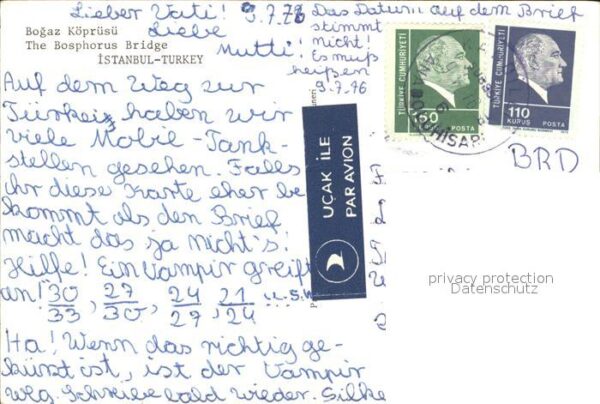 Boğaz Köprüsü
The Bosphorus Bridge
İSTANBUL-TURKEY
Lieber Vati! 3.7.76
Liebe
Mutti!
Das Datum auf dem Brief
stimmt
nicht!
Es muß
heißen
3.7.76
Auf dem Weg zur
Türkei haben wir
viele Mobil-Tank-
stellen gesehen. Falls
ihr diese Karte eher be
kommt als den Brief
macht das ja nicht's!
Hilfe! Ein Vampir greift
an! 30/33, 27/30, 24/27, 21/24 u.s.w
Ha! Wenn das richtig ge-
kürzt ist, ist der Vampir
weg. Schreibe bald wieder. Silke
UÇAK İLE
PAR AVION
TÜRKİYE CUMHURİYETİ
POSTA
TÜRKİYE CUMHURİYETİ
110
KURUŞ POSTA
BRD
privacy protection
Datenschutz